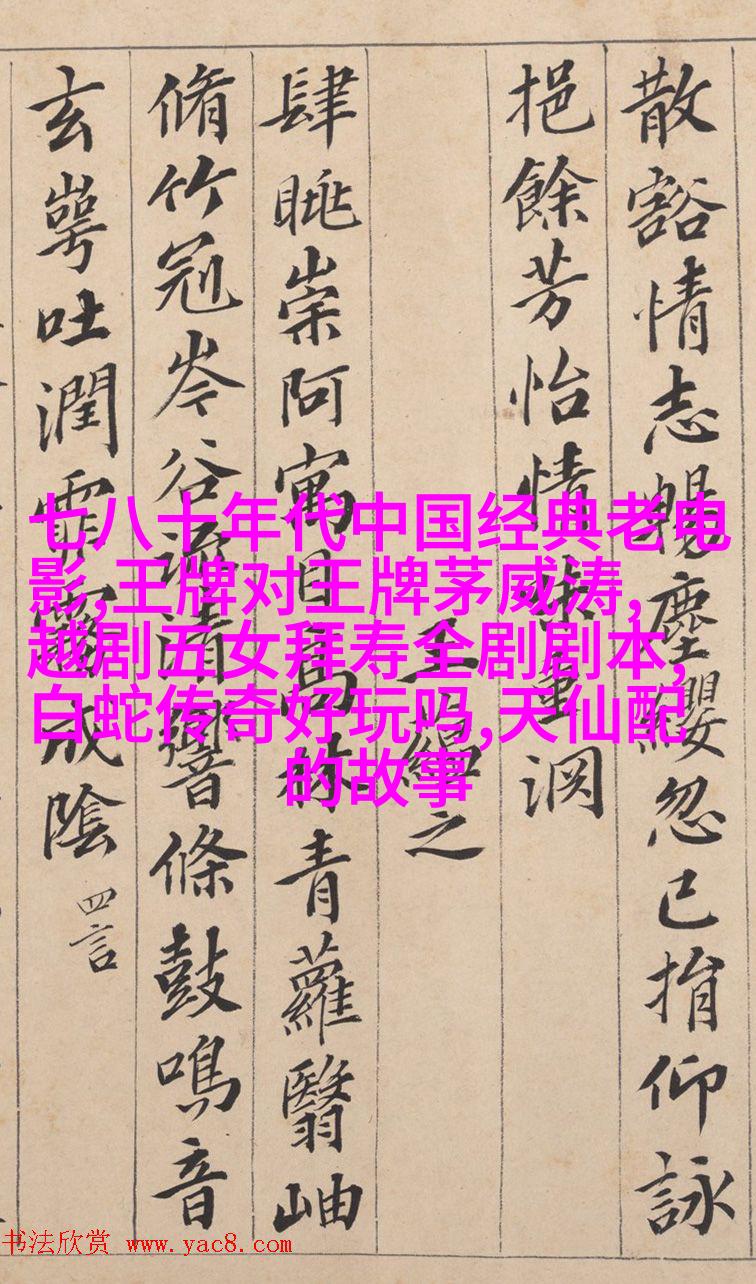 散豁情志暢塵纓忽已捐仰詠
挹餘芳怡情味重淵
王蘊之
肆眺崇阿寓目高林青蘿翳岫
脩竹冠岑谷流清響條鼓鳴音
玄崿吐潤霏霧成陰
四言
七八十年代中国经典老电
影,王牌对王牌茅威涛,
越剧五女拜寿全剧剧本,
白蛇传奇好玩吗,天仙配
的故事
书法欣赏 www.yac8.com